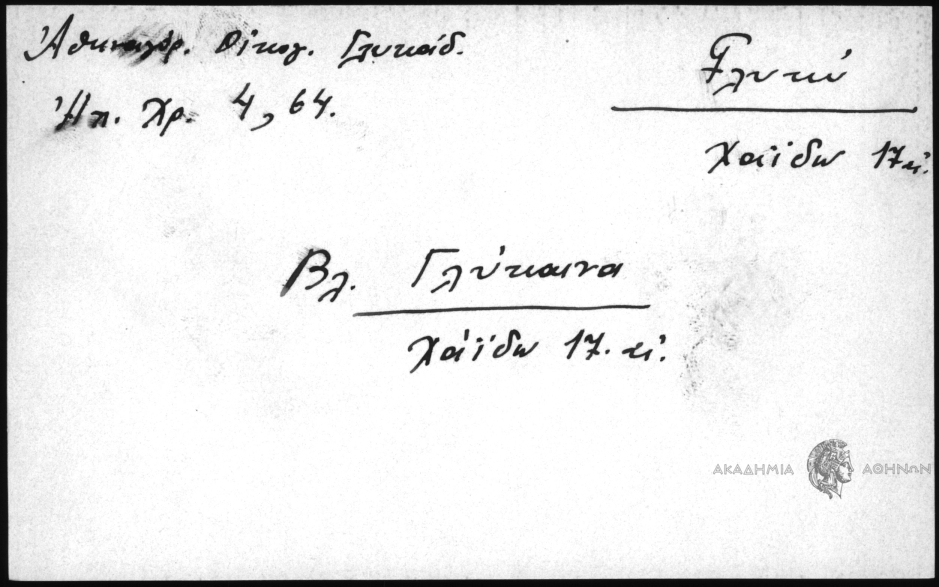 Ἀθηναγόρ. Οἰκογ. Γλυκάδ.
Ἠπ. Χρ. 4, 64.
Γλυκύ
Χαΐδω 17 αἰ.
Βλ. Γλύκαινα
Χάϊδω 17. αἰ.
ΑΚΑΔΗΜΙΑ ΑΘΗΝΩΝ